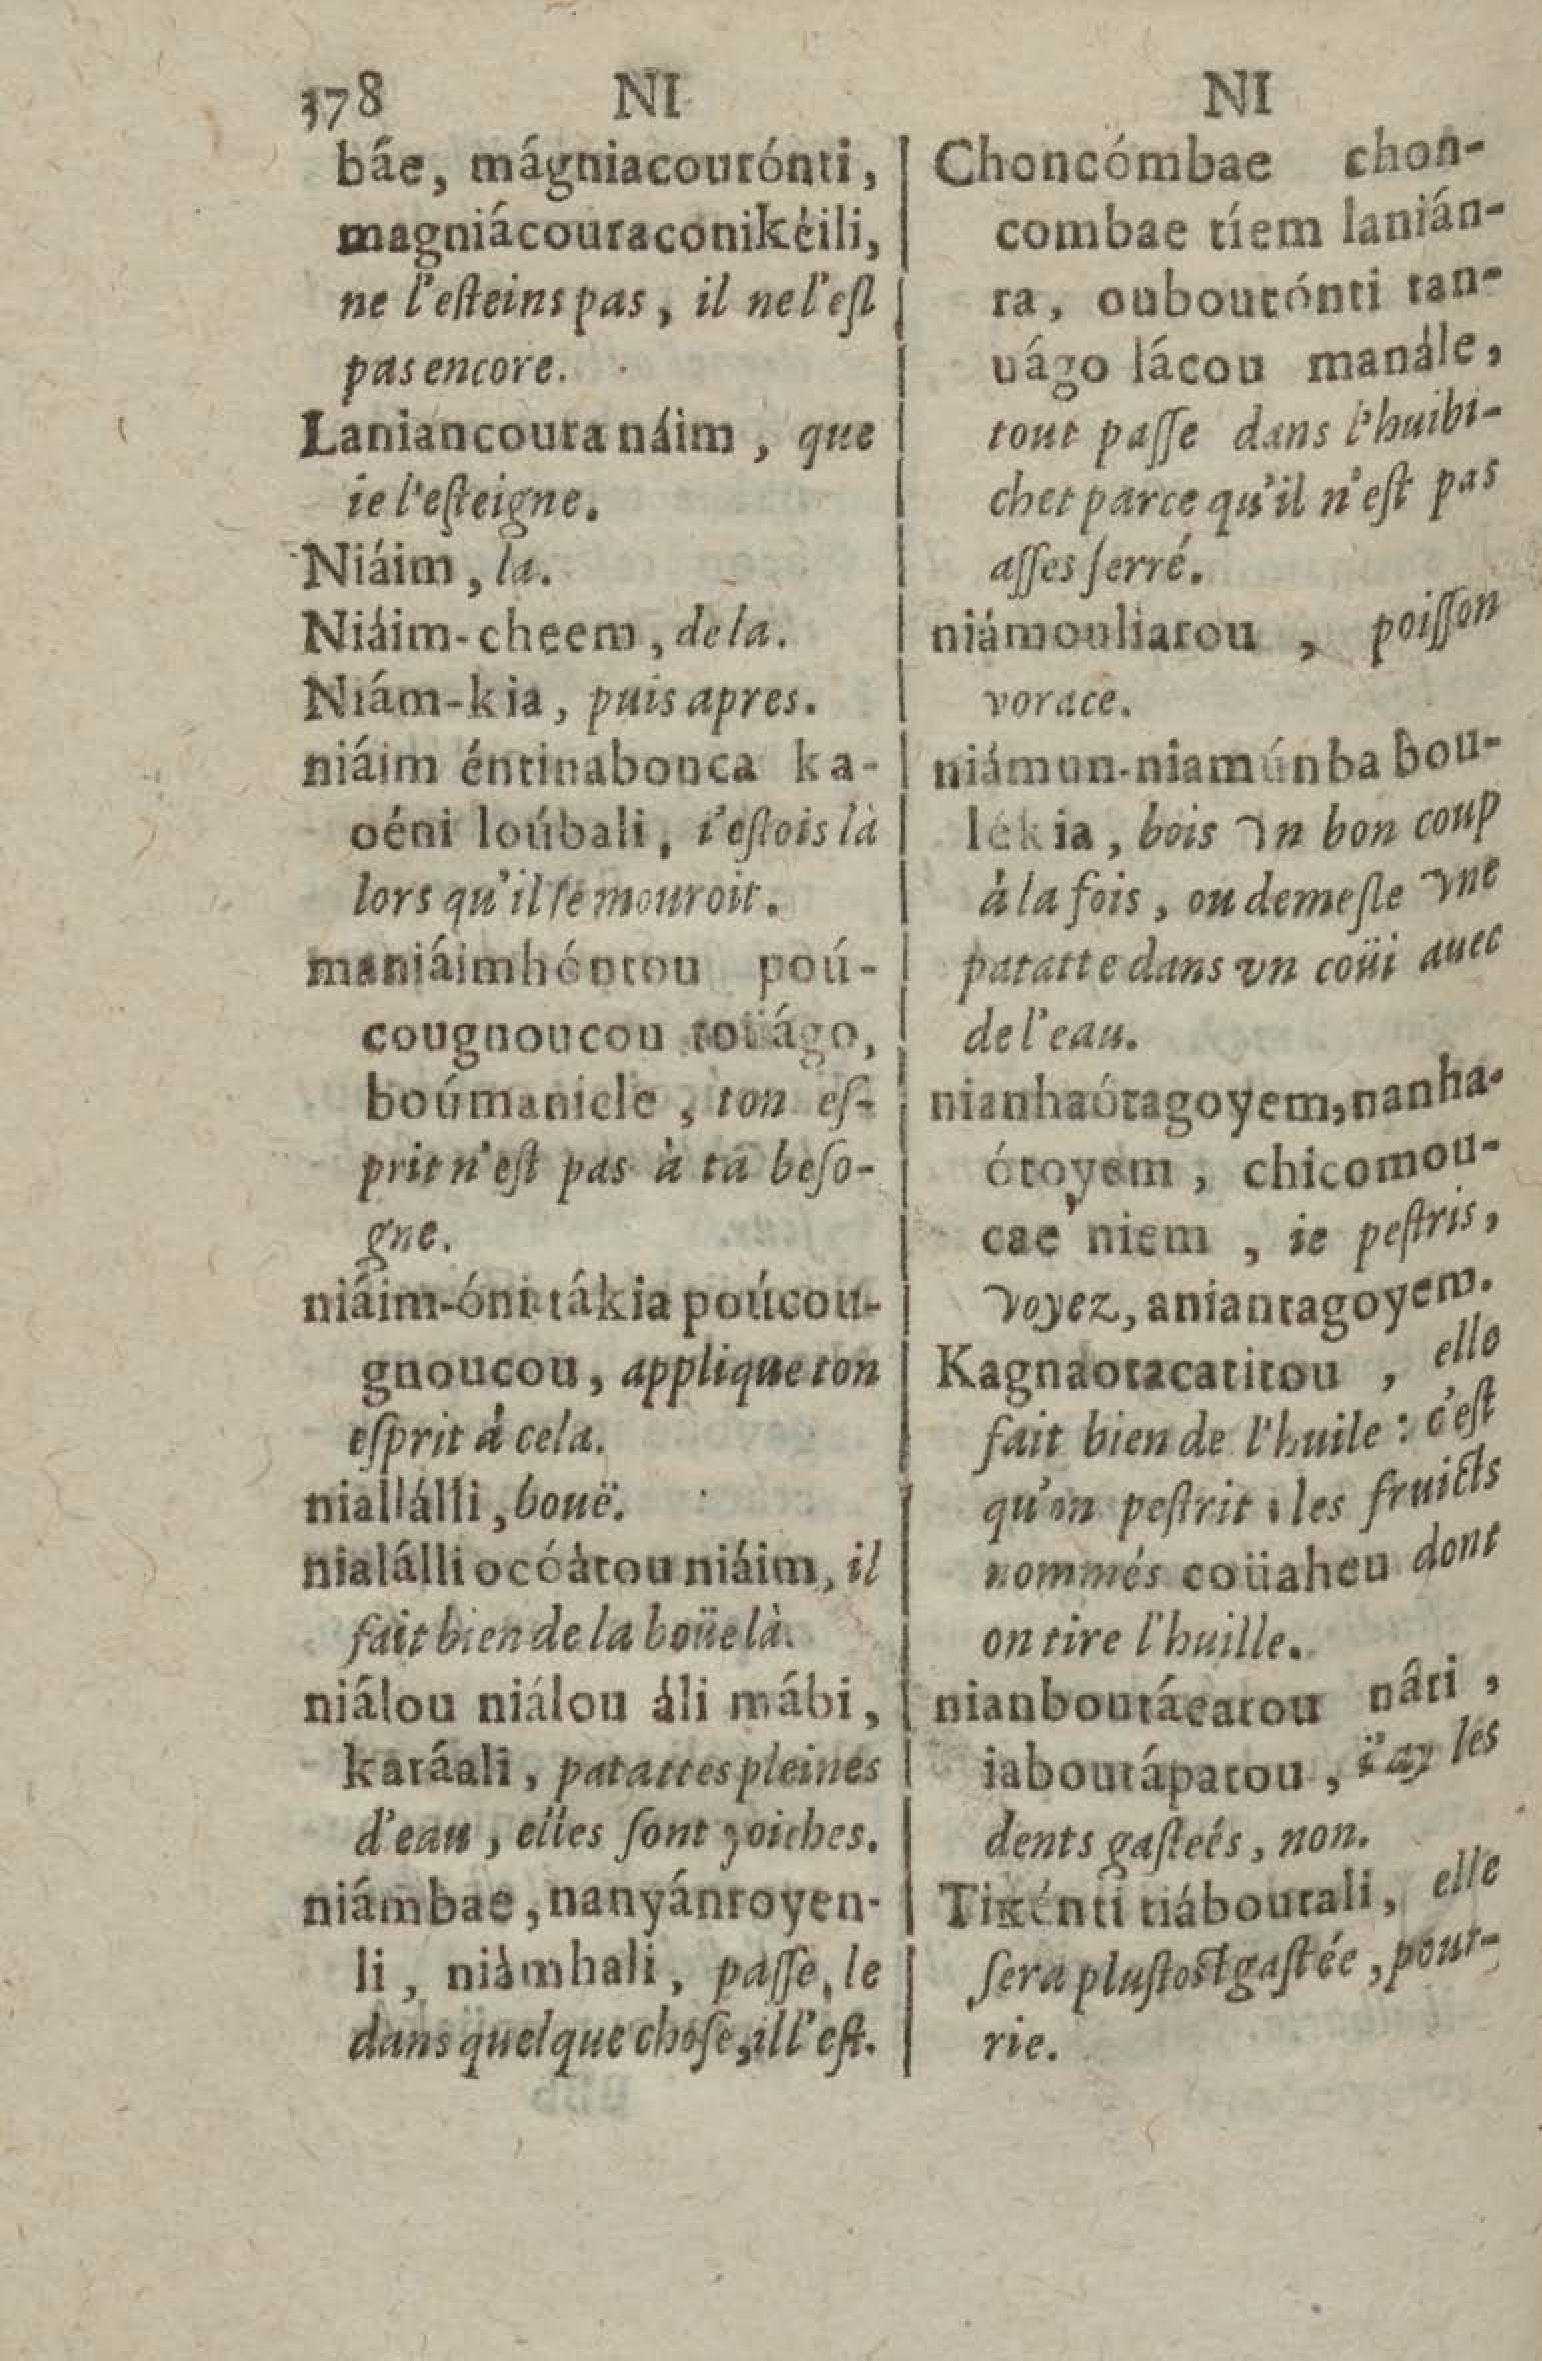 378 NI NI
báe, mágniacoutónti,
magniácouraconikéili,
ne l'eſteins pas, il ne l'eſt
pas encore.
Laniancoura náim, que
ie l'eſteigne.
Niáim, la.
Niáim-cheem, de la.
Niám-kia, puis apres.
niáim éntinabouca ka-
oéni loúbali, i'eſtois là
lors qu'il ſe mouroit.
maniáimhóntou poú-
cougnoucou toüágo,
boúmanicle, ton eſ-
prit n'eſt pas à ta beſo-
gne.
niáim-óni tákia poúcou-
gnoucou, applique ton
eſprit à cela.
niallálli, bouë.
nialálli ocóàtou niáim, il
fait bien de la boüe là.
niálou niálou áli mábi,
karáali, patattes pleines
d'eau, elles ſont
niámbae, nanyánroyen-
li, niàmhali, paſſe, le
dans quelque choſe, il l'eſt.
Choncómbae chon-
combae tíem lanián-
ra, ouboutónti tan-
uágo lácou manále,
tout paſſe dans l'huibi-
chet parce qu'il n'eſt pas
aſſes ſerré.
niámouliarou, poiſſon
vorace.
niámun-niamúnba bou-
lékia, bois vn bon coup
à la fois, ou demeſle vne
patatte dans vn coüi auec
de l'eau.
nianhaótagoyem, nanha-
ótoyem, chicomou-
cae niem, ie peſtris,
voyez, aniantagoyem.
Kagnaotacatitou, elle
fait bien de l'huile : c'eſt
qu'on peſtrit les fruicts
nommés coüaheu dont
on tire l'huille.
nianboutácatou nâti,
iaboutápatou, i'ay les
dents gaſteés, non.
Tikénti tiáboutali, elle
ſera pluſtoſt gaſtée, pour-
rie.